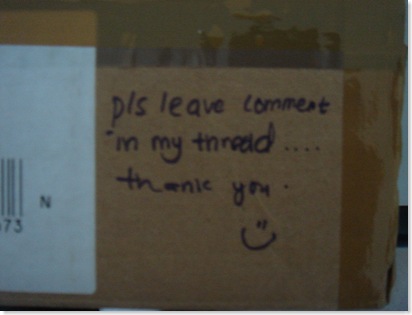 pls leave comment
in my thread ....
thank you.
N
673